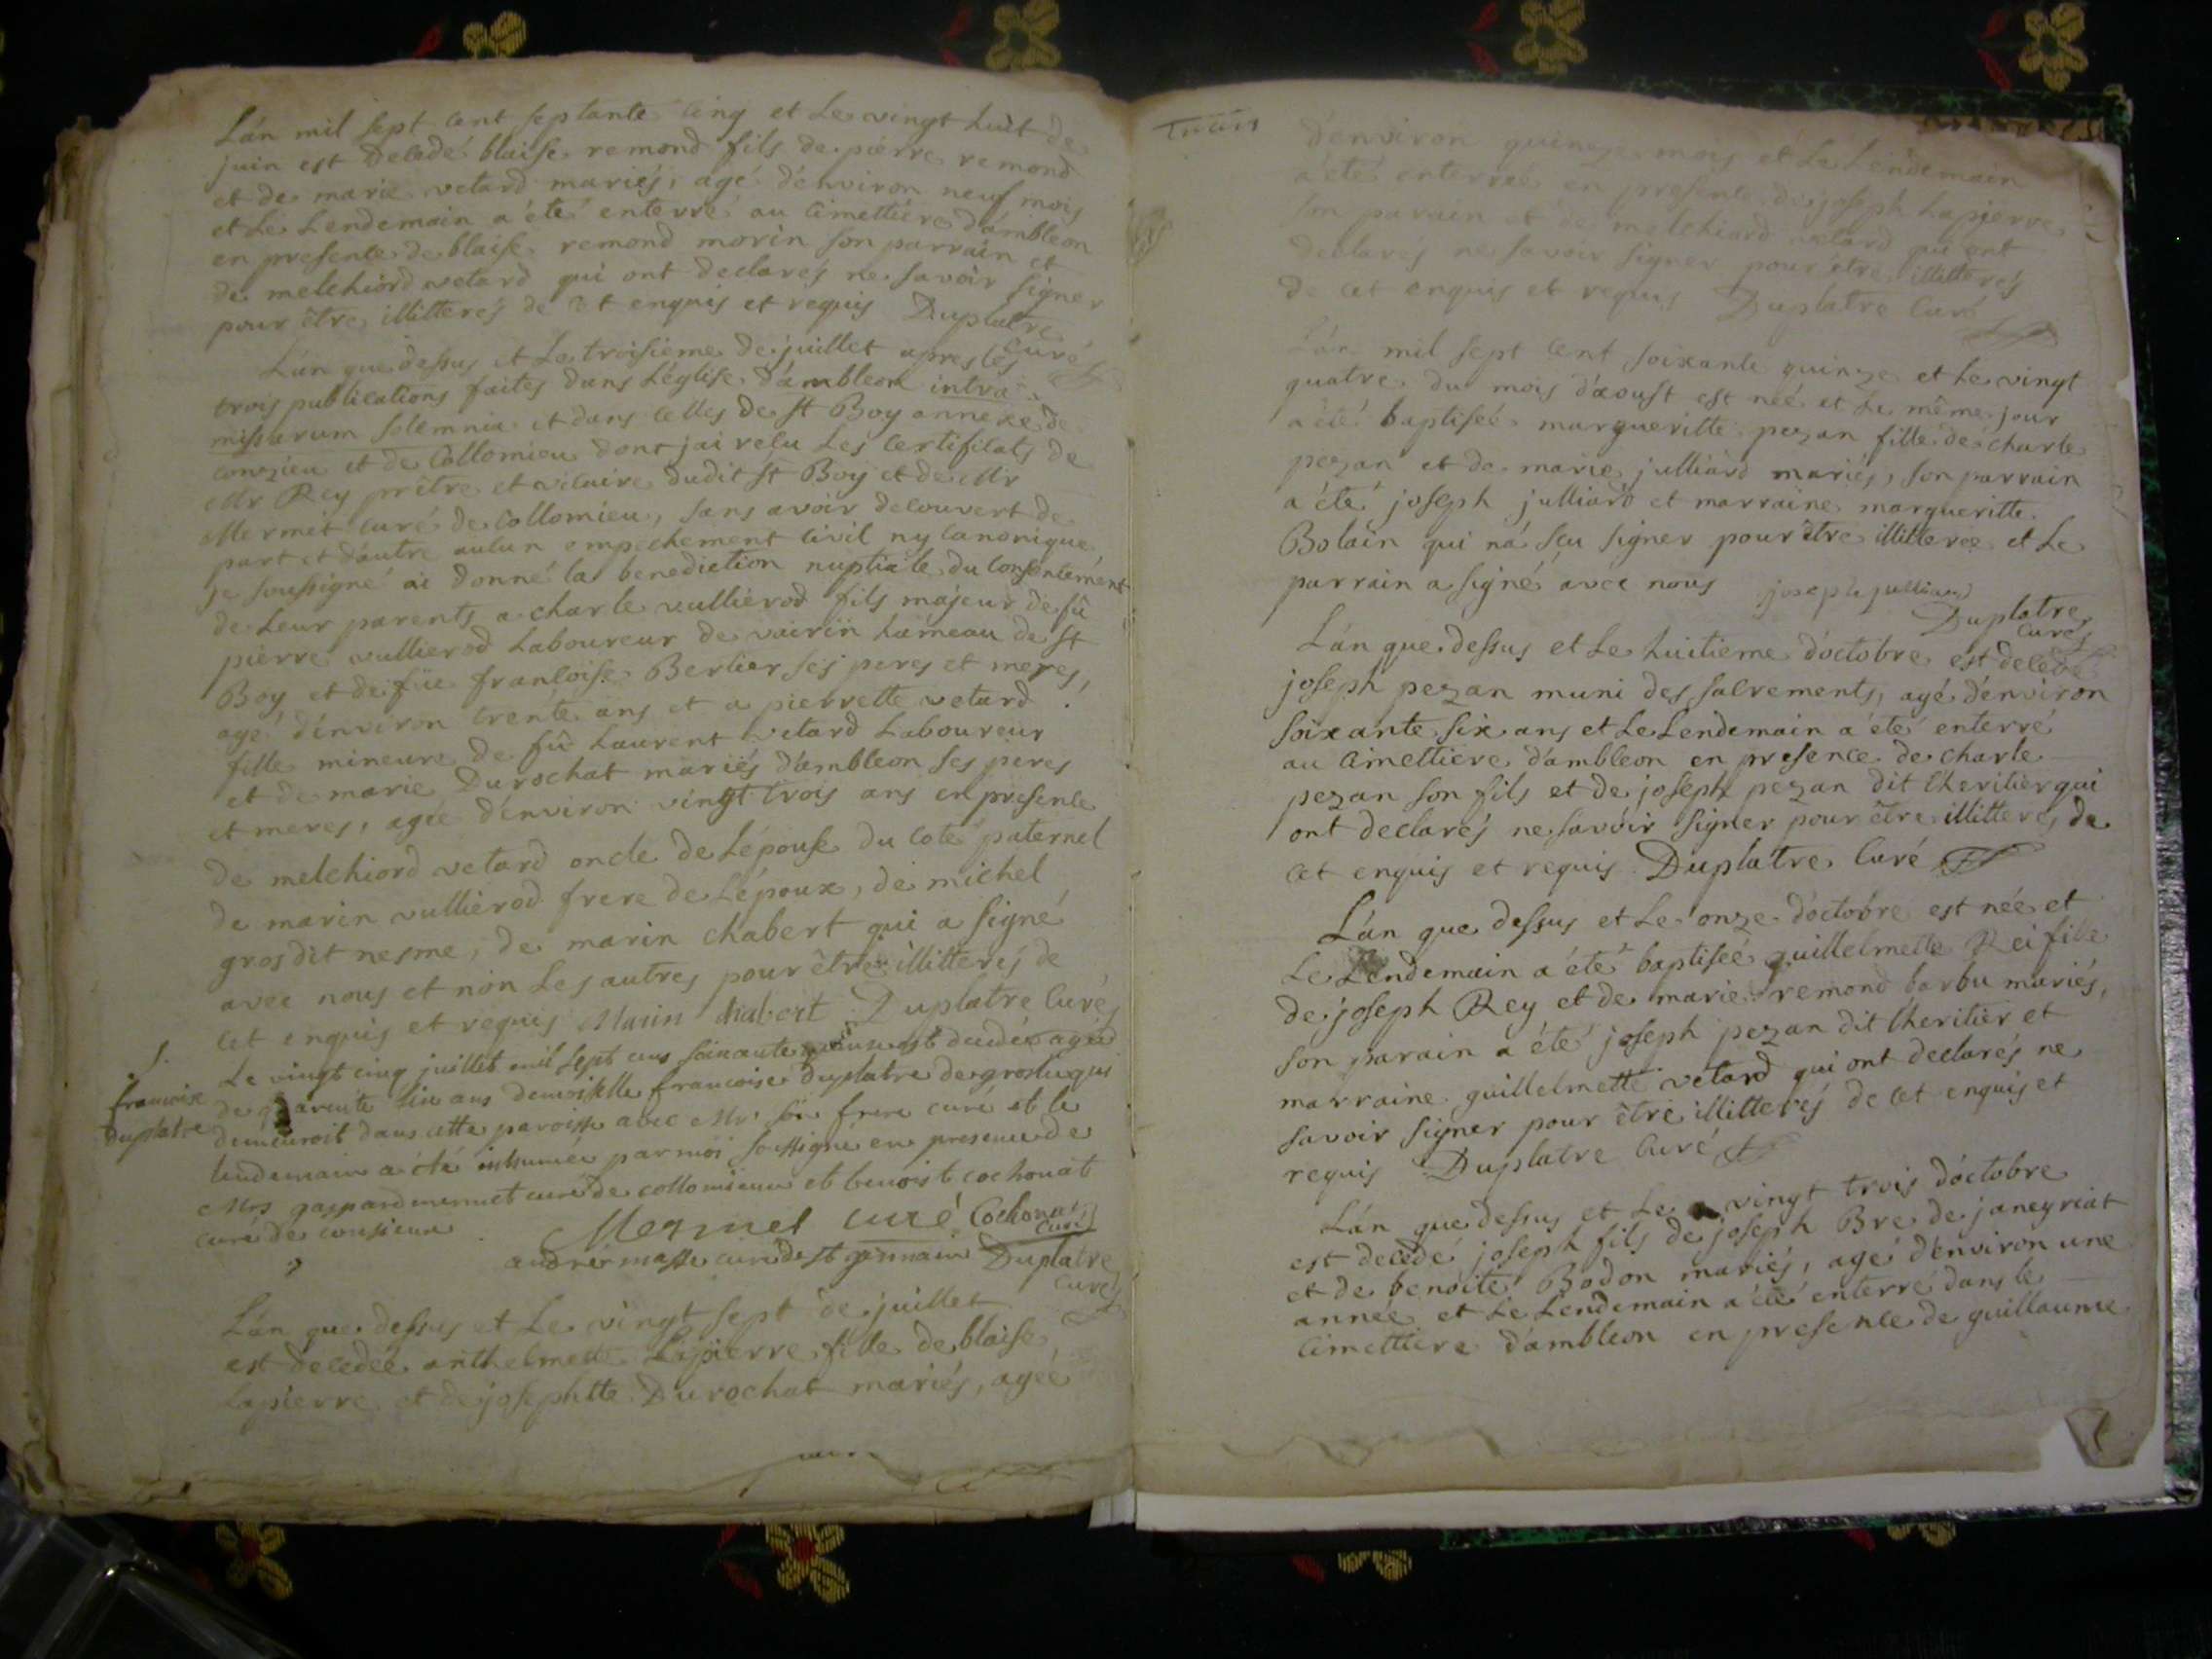 Lán mil sept cent septante cinq et Le vingt huit de
juin est decedé blaise remond fils de pierre remond
et de marie vetard mariés, agé d'environ neuf mois
et Le Lendemain a été enterré au cimettiére d'ambleon
en presence de blaise remond morin son parrain et
de melchiord vetard qui ont declarés ne savoir signer
pour être illitterés de cet enquis et requis Duplatre
curé
Lán que dessus et Le troisieme de juillet apres les
trois publications faites dans L'église d'ambleon intra
missarum solemnia et dans celles de st Boy annexe de
conzieu et de Collomieu dont jai recu Les certificats de
Mr Rey prêtre et vicaire dudit st Boy et de Mr
Mermet curé de Collomieu, sans avoir decouvert de
part et d'autre aucun empechement civil ny canonique,
je soussigné ai donné la benediction nuptiale du consentement
de Leur parents a charle vullierod fils majeur de fû
pierre vullierod Laboureur de vairin hameau de st
Boy et de fûe francoise Berlier ses peres et meres,
agé d'environ trente ans et a pierrette vetard
fille mineure de fû Laurent vetard Laboureur
et de marie Durochat mariés d'ambleon ses peres
et meres, agée d'environ vingt trois ans en presence
de melchiord vetard oncle de L'épouse du coté paternel
de marin vullierod frere de L'époux, de michel
gros dit nesme, de marin chabert qui a signé
avec nous et non Les autres pour être illitterés de
cet enquis et requis Marin chabert Duplatre Curé
S.
francoise
Duplatre
Le vingt cinq juillet mil sept cens soixante quinze est decedée agée
de quarente six ans demoiselle francoise duplatre de groslée qui
demeuroit dans cette paroisse avec Mr. son frere curé et le
lendemain a été inhumée par moi soussigné en presence de
Mrs gaspard mermet curé de collomieu et benoist cochonat
curé de consieux
Mermet curé Cochonat
curé
andré masse curé de st germain Duplatre
Curé
Lán que dessus et Le vingt sept de juillet
est decedeé anthelmette Lapierre fille de blaise
Lapierre et de josephtte Durochat mariés, ageé
d'environ quinze mois et Le Lendemain
a été enterreé en presence de joseph Lapierre
son parain et de melchiord vetard qui ont
declarés ne savoir signer pour être illitterés
de cet enquis et requis Duplatre Curé
Lán mil sept cent soixante quinze et Le vingt
quatre du mois d'aoust est neé et Le même jour
a été baptiseé margueritte pezan fille de charle
pezan et de marie julliard mariés, son parrain
a été joseph julliard et marraine margueritte
Bolain qui ná sçu signer pour être illitterée et Le
parrain a signé avec nous joseph julliard
Duplatre
curé
Lán que dessus et Le huitieme d'octobre est decedé
joseph pezan muni des sacrements, agé d'environ
soixante six ans et Le Lendemain a été enterré
au cimettiere d'ambleon en presence de charle
pezan son fils et de joseph pezan dit l'heritier qui
ont declarés ne savoir signer pour être illitterés de
cet enquis et requis Duplatre Curé
Lán que dessus et Le onze d'octobre est née et
Le Lendemain a été baptiseé guillelmette Rei fille
de joseph Rey et de marie remond barbu mariés,
son parain a été joseph pezan dit l'heritier et
marraine guillelmette vetard qui ont declarés ne
savoir signer pour être illitterés de cet enquis et
requis Duplatre Curé
Lán que dessus et Le vingt trois d'octobre
est decedé joseph fils de joseph Bre de janeyriat
et de benoite Bodon mariés, agé d'environ une
année et Le Lendemain a été enterré dans le
cimettiere d'ambleon en presence de guillaume